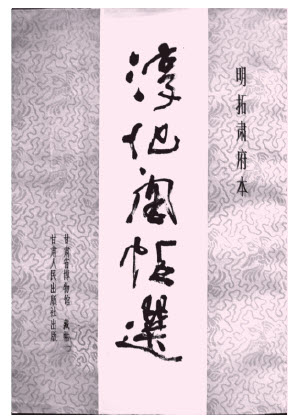 明拓肃府本
淳化阁帖選
甘肃省博物馆 藏帖
甘肃人民出版社出版